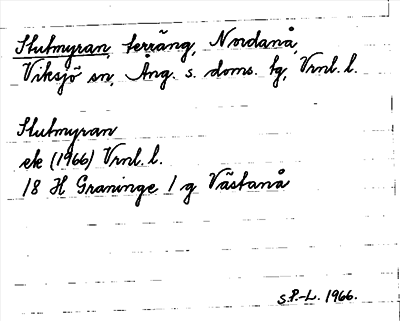 Slutmyran, terräng, Nordanå,
Viksjö sn, Ång. s. doms. tg, Vrnl. l.
Slutmyran
ek (1966) Vrnl. l.
18 H Graninge 1 g Västanå
S.P.-L. 1966.